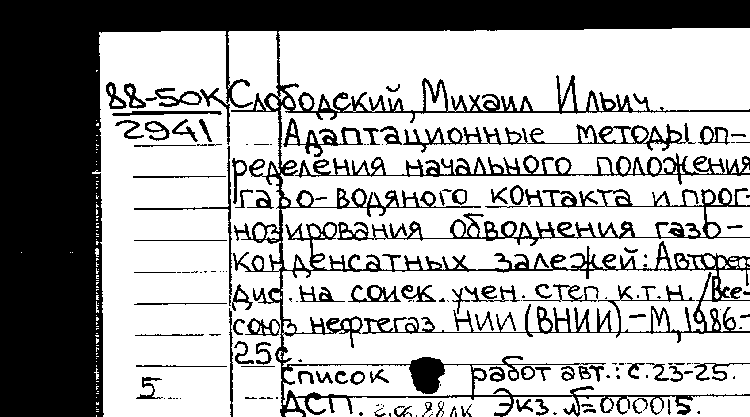 88-50К Слободский, Михаил Ильич.
2941 Адаптационные методы оп-
ределения начального положения
газо-водяного контакта и прог-
нозирования обводнения газо-
конденсатных залежей: Автореф
дис. на соиск. учен. степ к.т.н./Все-
союз нефтегаз. НИИ (ВНИИ).-М,1986.-
25с.
список работ авт.: с.23-25.
5
ДСП. Экз. №000015.